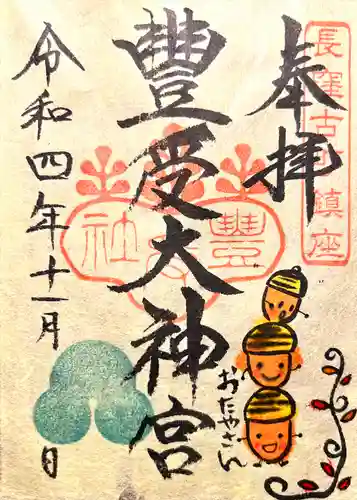 奉拝
長窪古町鎮座
豐受大神宮
豐受社
おたやさん
令和四年十一月
日